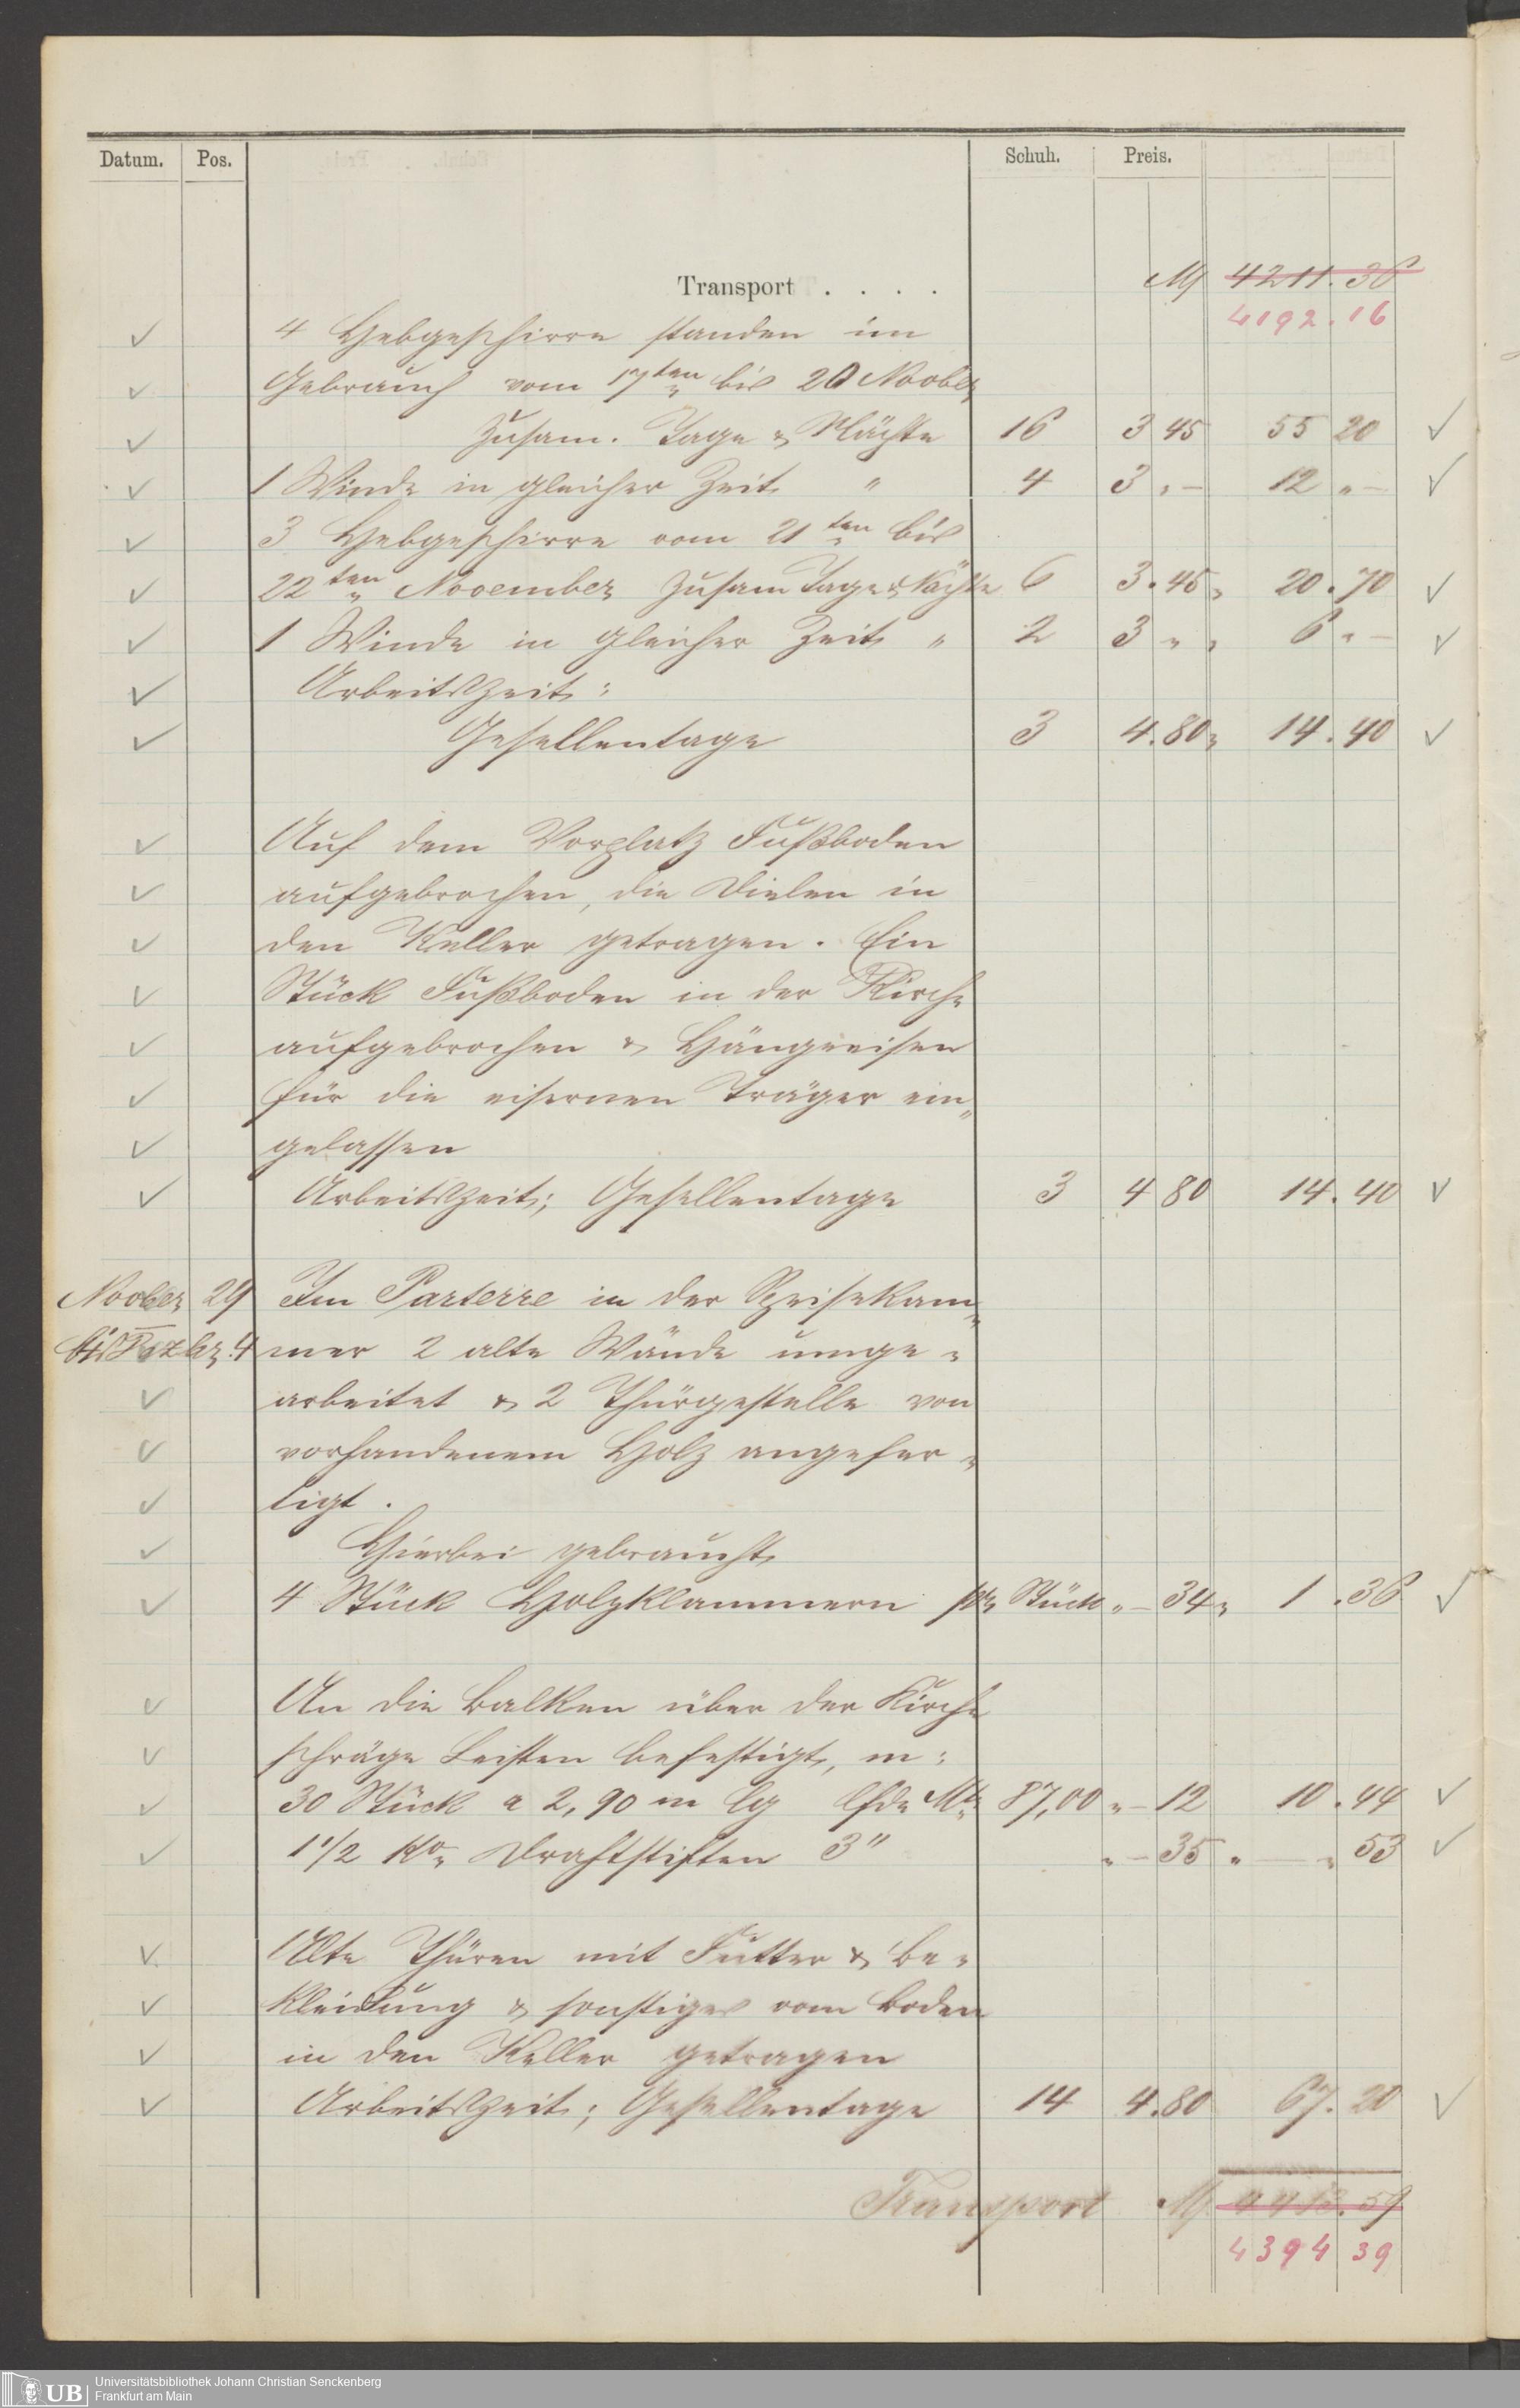 Datum. Pos. Schuh. Preis.
Transport . . . . M 4211.36
4192.16
4 Hebgeschirre standen im
Gebrauch vom 17ten bis 20 Novbr
zusam. Tage & Nächte 16 3 45 55 20
1 Winde in gleicher Zeit " 4 3 „ – 12 „ –
3 Hebgeschirre vom 21ten bis
22ten November zusam Tage & Nächte 6 3.45 „ 20.70
1 Winde in gleicher Zeit " 2 3 „ „ 6 „ –
Arbeitszeit:
Gesellentage 3 4.80 „ 14.40
Auf dem Vorplatz Fußboden
aufgebrochen, die Dielen in
den Keller getragen. Ein
Stück Fußboden in der Kirche
aufgebrochen & Hängeeisen
für die eisernen Träger ein„
gelassen
Arbeitszeit; Gesellentage 3 4 80 14.40
Novber 29 Im Parterre in der Speisekam„
bis Dezbr. 4 mer 2 alte Wände umge„
arbeitet & 2 Thürgestelle von
vorhandenem Holz angefer„
tigt.
Hierbei gebraucht
4 Stück Holzklammern pr Stück „ – 34 „ 1.36
An die Balken über der Kirche
schräge Leisten befestigt, m:
30 Stück a 2,90 m lg lfde Mtr 87,00 „ – 12 10.44
1 1/2 Ko Drahtstiften 3" „ – 35 „ – „ 53
Alte Thüren mit Futter & Be„
kleidung & sonstiges vom Boden
in den Keller getragen
Arbeitszeit; Gesellentage 14 4.80 67.20
Transport M 4413.59
4394 39
UB Universitätsbibliothek Johann Christian Senckenberg
Frankfurt am Main